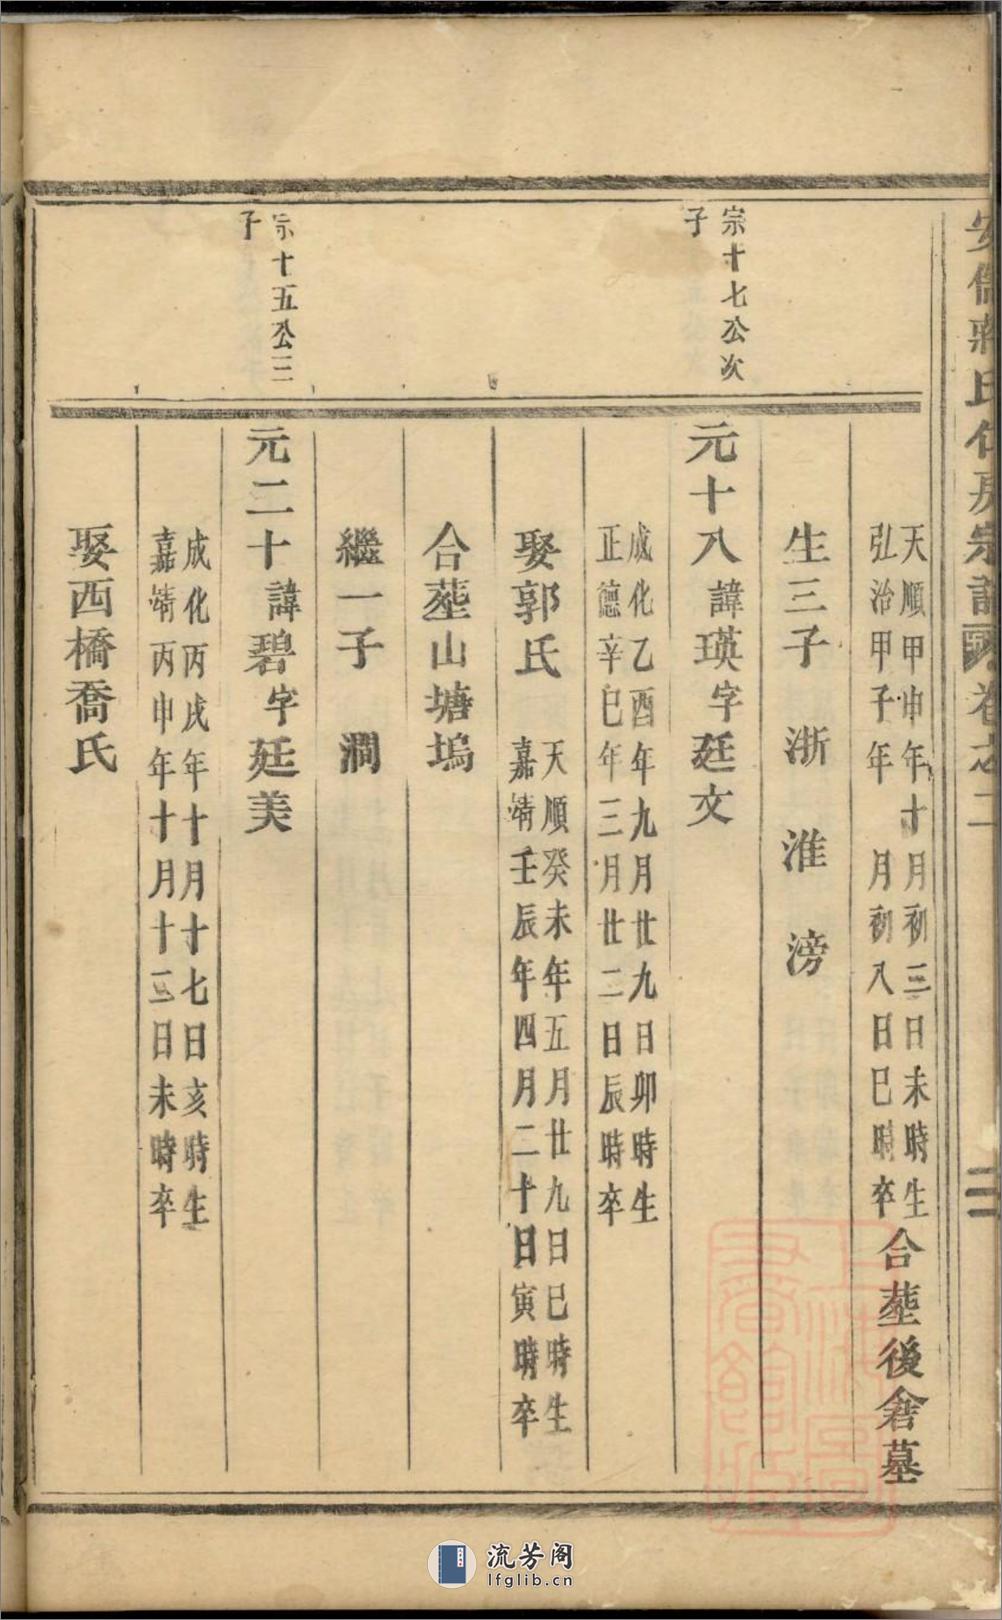 安儒蔣氏仁房宗譜 卷之二 三
天順甲申年十月初三日未時生
弘治甲子年 月初八日巳時卒
合葬後舍墓
生三子 浙 淮 滂
宗十七公次子
元十八 諱瑛字廷文
成化乙酉年九月廿九日卯時生
正德辛巳年三月廿二日辰時卒
娶郭氏
天順癸未年五月廿九日巳時生
嘉靖壬辰年四月二十日寅時卒
合葬山塘塢
繼一子 澗
宗十五公三子
元二十 諱碧字廷美
成化丙戌年十月十七日亥時生
嘉靖丙申年十月十三日未時卒
娶西橋喬氏
流芳阁
lfglib.cn